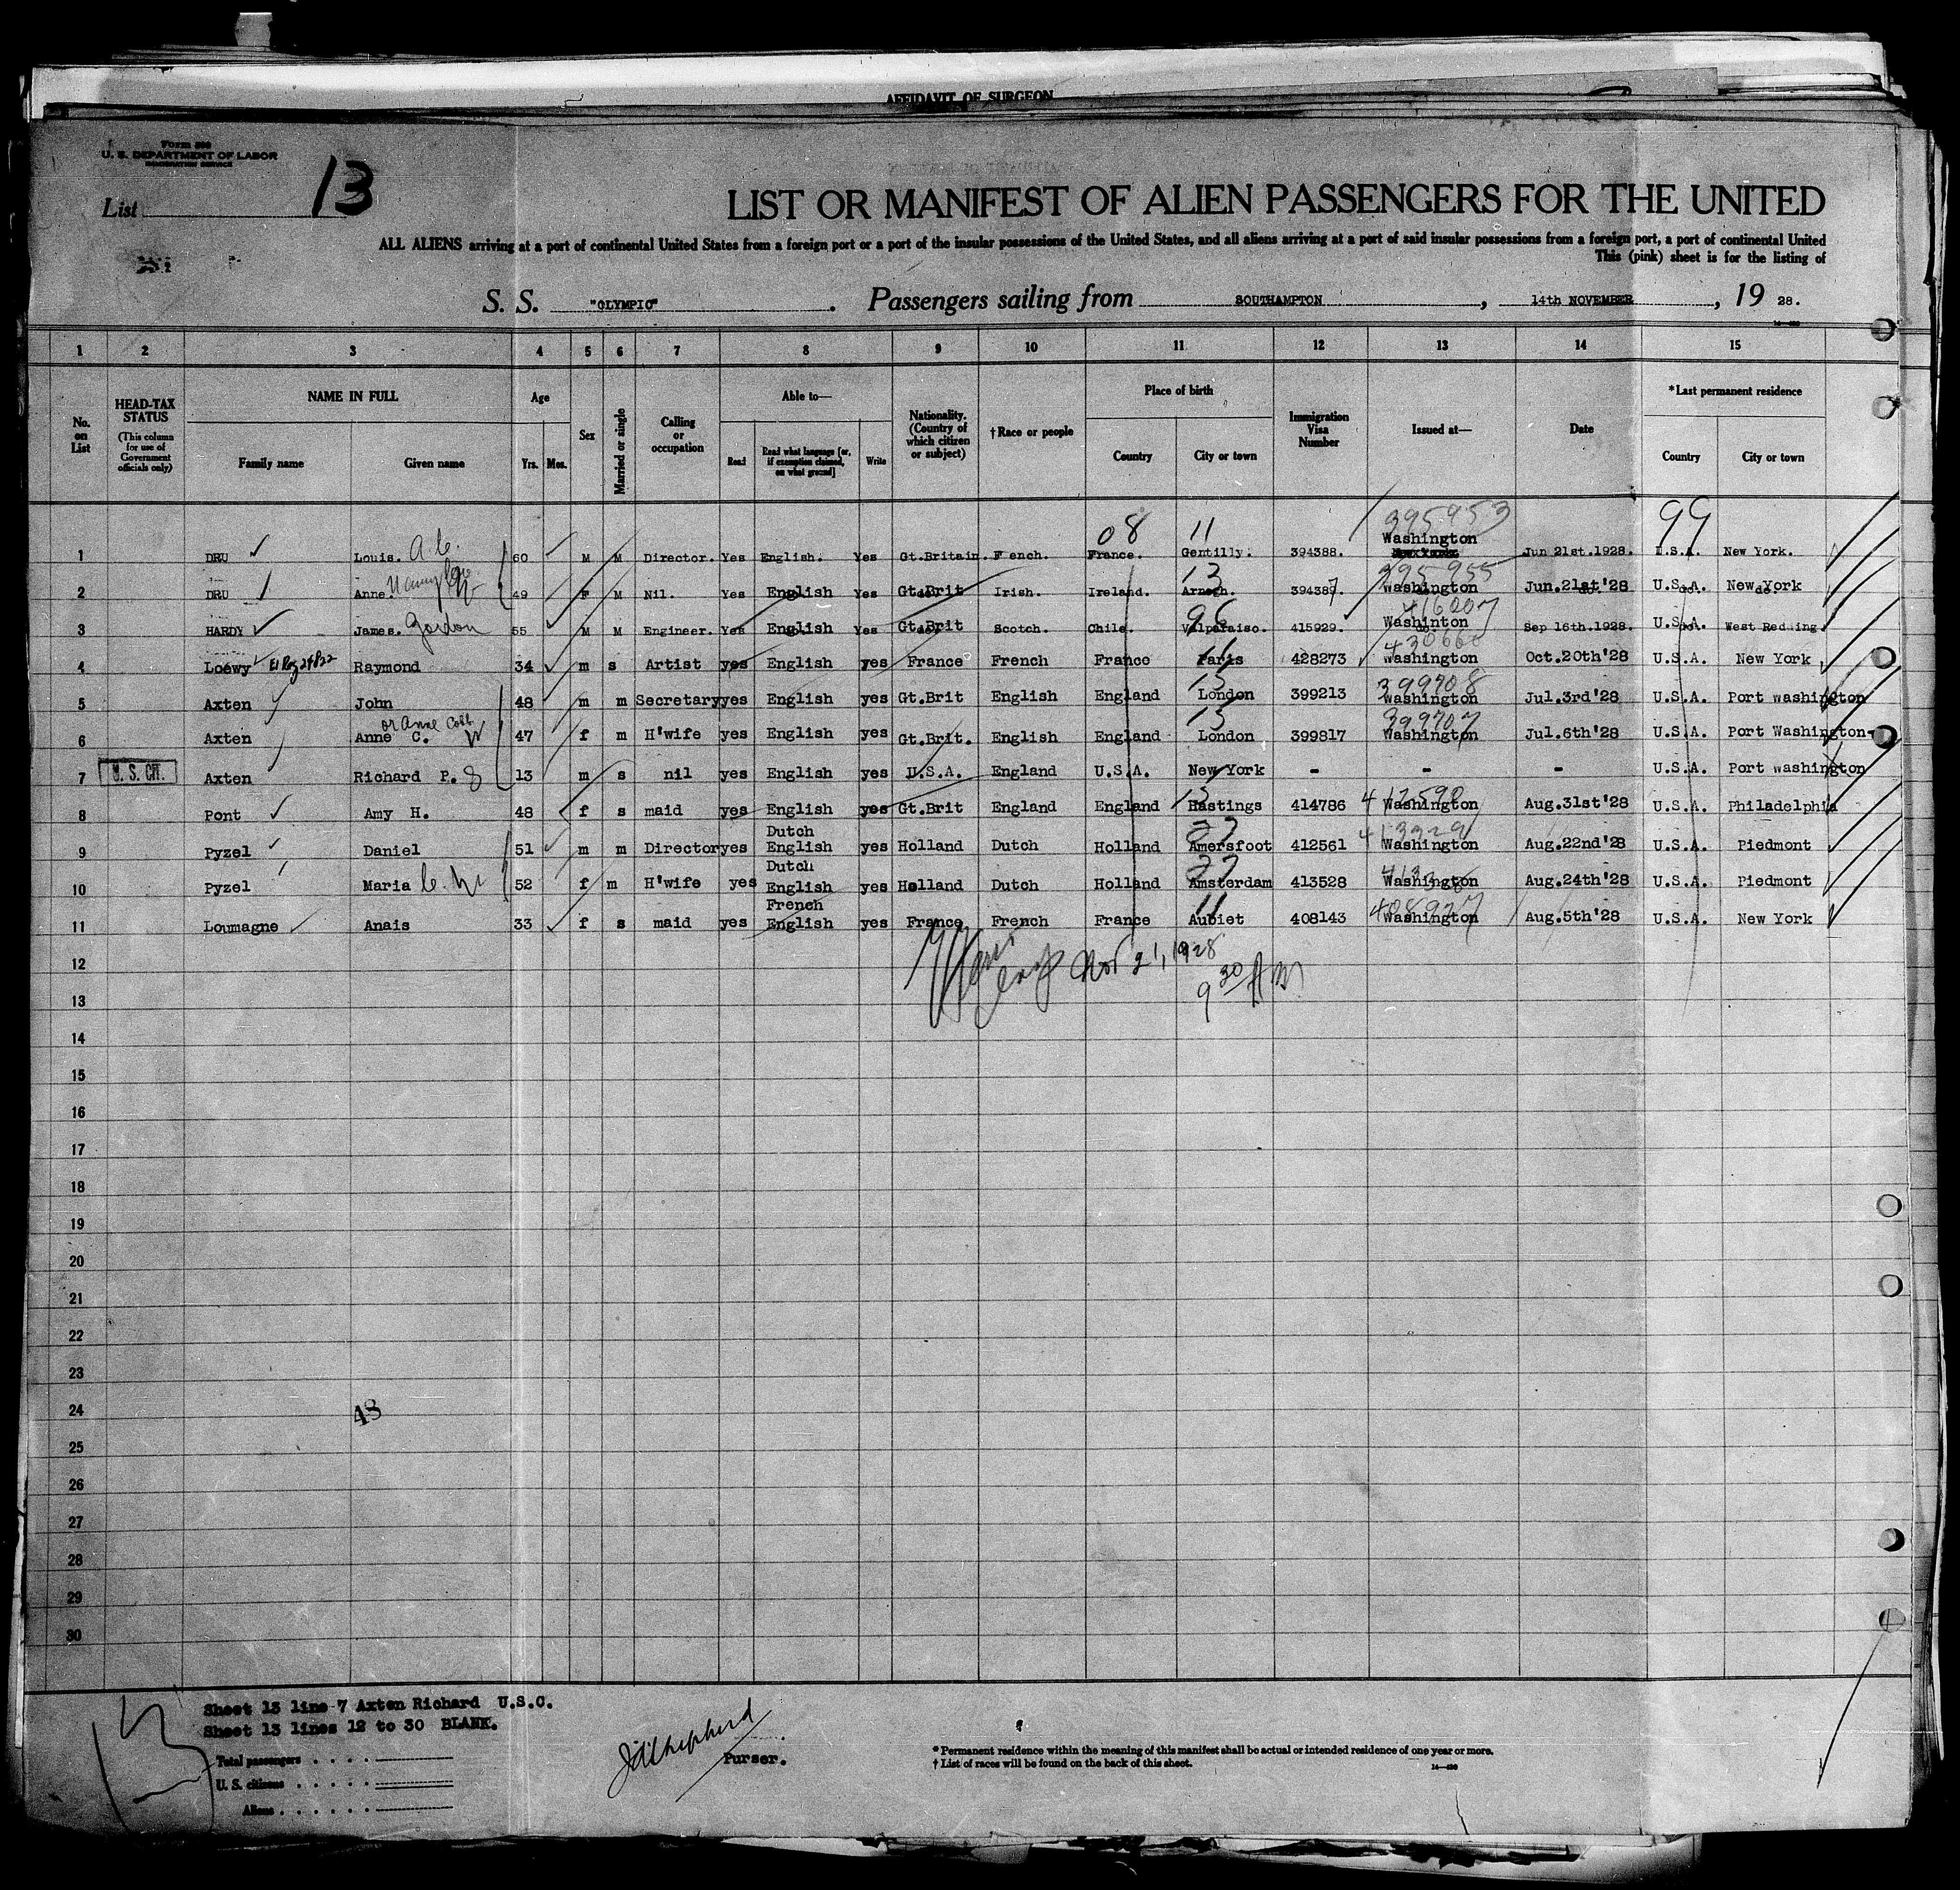 AFFIDAVIT OF SURGEON
Form 500
U. S. DEPARTMENT OF LABOR
IMMIGRATION SERVICE
List 13
LIST OR MANIFEST OF ALIEN PASSENGERS FOR THE UNITED
ALL ALIENS arriving at a port of continental United States from a foreign port or a port of the insular possessions of the United States, and all aliens arriving at a port of said insular possessions from a foreign port, a port of continental United
This (pink) sheet is for the listing of
S. S. "OLYMPIC". Passengers sailing from SOUTHAMPTON, 14th NOVEMBER, 19 28.
1 2 3 4 5 6 7 8 9 10 11 12 13 14 15
No. on List
HEAD-TAX STATUS (This column for use of Government officials only)
NAME IN FULL Family name Given name
Age Yrs. Mos.
Sex
Married or single
Calling or occupation
Able to— Read Read what language [or, if exemption claimed, on what ground] Write
Nationality. (Country of which citizen or subject)
†Race or people
Place of birth Country City or town
Immigration Visa Number
Issued at—
Date
*Last permanent residence Country City or town
08 11 395953 99
1 DRU Louis. 60 M M Director. Yes English. Yes Gt.Britain. F ench. France. Gentilly. 394388. Washington Jun 21st.1928. U.S.A. New York.
13 395955
2 DRU Anne. 49 F M Nil. Yes English Yes Gt.Brit Irish. Ireland. Armagh. 394387 Washington Jun.21st'28 U.S.A. New York
96 416007
3 HARDY James. Gordon 55 M M Engineer. Yes English Yes Gt.Brit Scotch. Chile. Valparaiso. 415929. Washinton Sep 16th.1928. U.S.A. West Redding.
11
4 Loewy Raymond 34 m s Artist yes English yes France French France Paris 428273 Washington Oct.20th'28 U.S.A. New York
13 399708
5 Axten John 48 m m Secretary yes English yes Gt.Brit English England London 399213 Washington Jul.3rd'28 U.S.A. Port washington
or Anne Cobb 13 399707
6 Axten Anne C. W 47 f m H'wife yes English yes Gt.Brit. English England London 399817 Washington Jul.6th'28 U.S.A. Port Washington
7 U. S. CIT. Axten Richard P. 8 13 m s nil yes English yes U.S.A. England U.S.A. New York - - - U.S.A. Port washington
13 412590
8 Pont Amy H. 48 f s maid yes English yes Gt.Brit England England Hastings 414786 Washington Aug.31st'28 U.S.A. Philadelphia
Dutch 27
9 Pyzel Daniel 51 m m Director yes English yes Holland Dutch Holland Amersfoot 412561 Washington Aug.22nd'28 U.S.A. Piedmont
Dutch 27
10 Pyzel Maria 52 f m H'wife yes English yes Holland Dutch Holland Amsterdam 413528 Washington Aug.24th'28 U.S.A. Piedmont
French 11 408927
11 Loumagne Anais 33 f s maid yes English yes France French France Aubiet 408143 Washington Aug.5th'28 U.S.A. New York
12 Nov 21, 1928
13 9 30 AM
14
15
16
17
18
19
20
21
22
23
24 48
25
26
27
28
29
30
Sheet 13 line 7 Axten Richard U.S.C.
Sheet 13 lines 12 to 30 BLANK.
13
Total passengers
U. S. citizens
Aliens
Purser.
*Permanent residence within the meaning of this manifest shall be actual or intended residence of one year or more.
†List of races will be found on the back of this sheet.
14—430